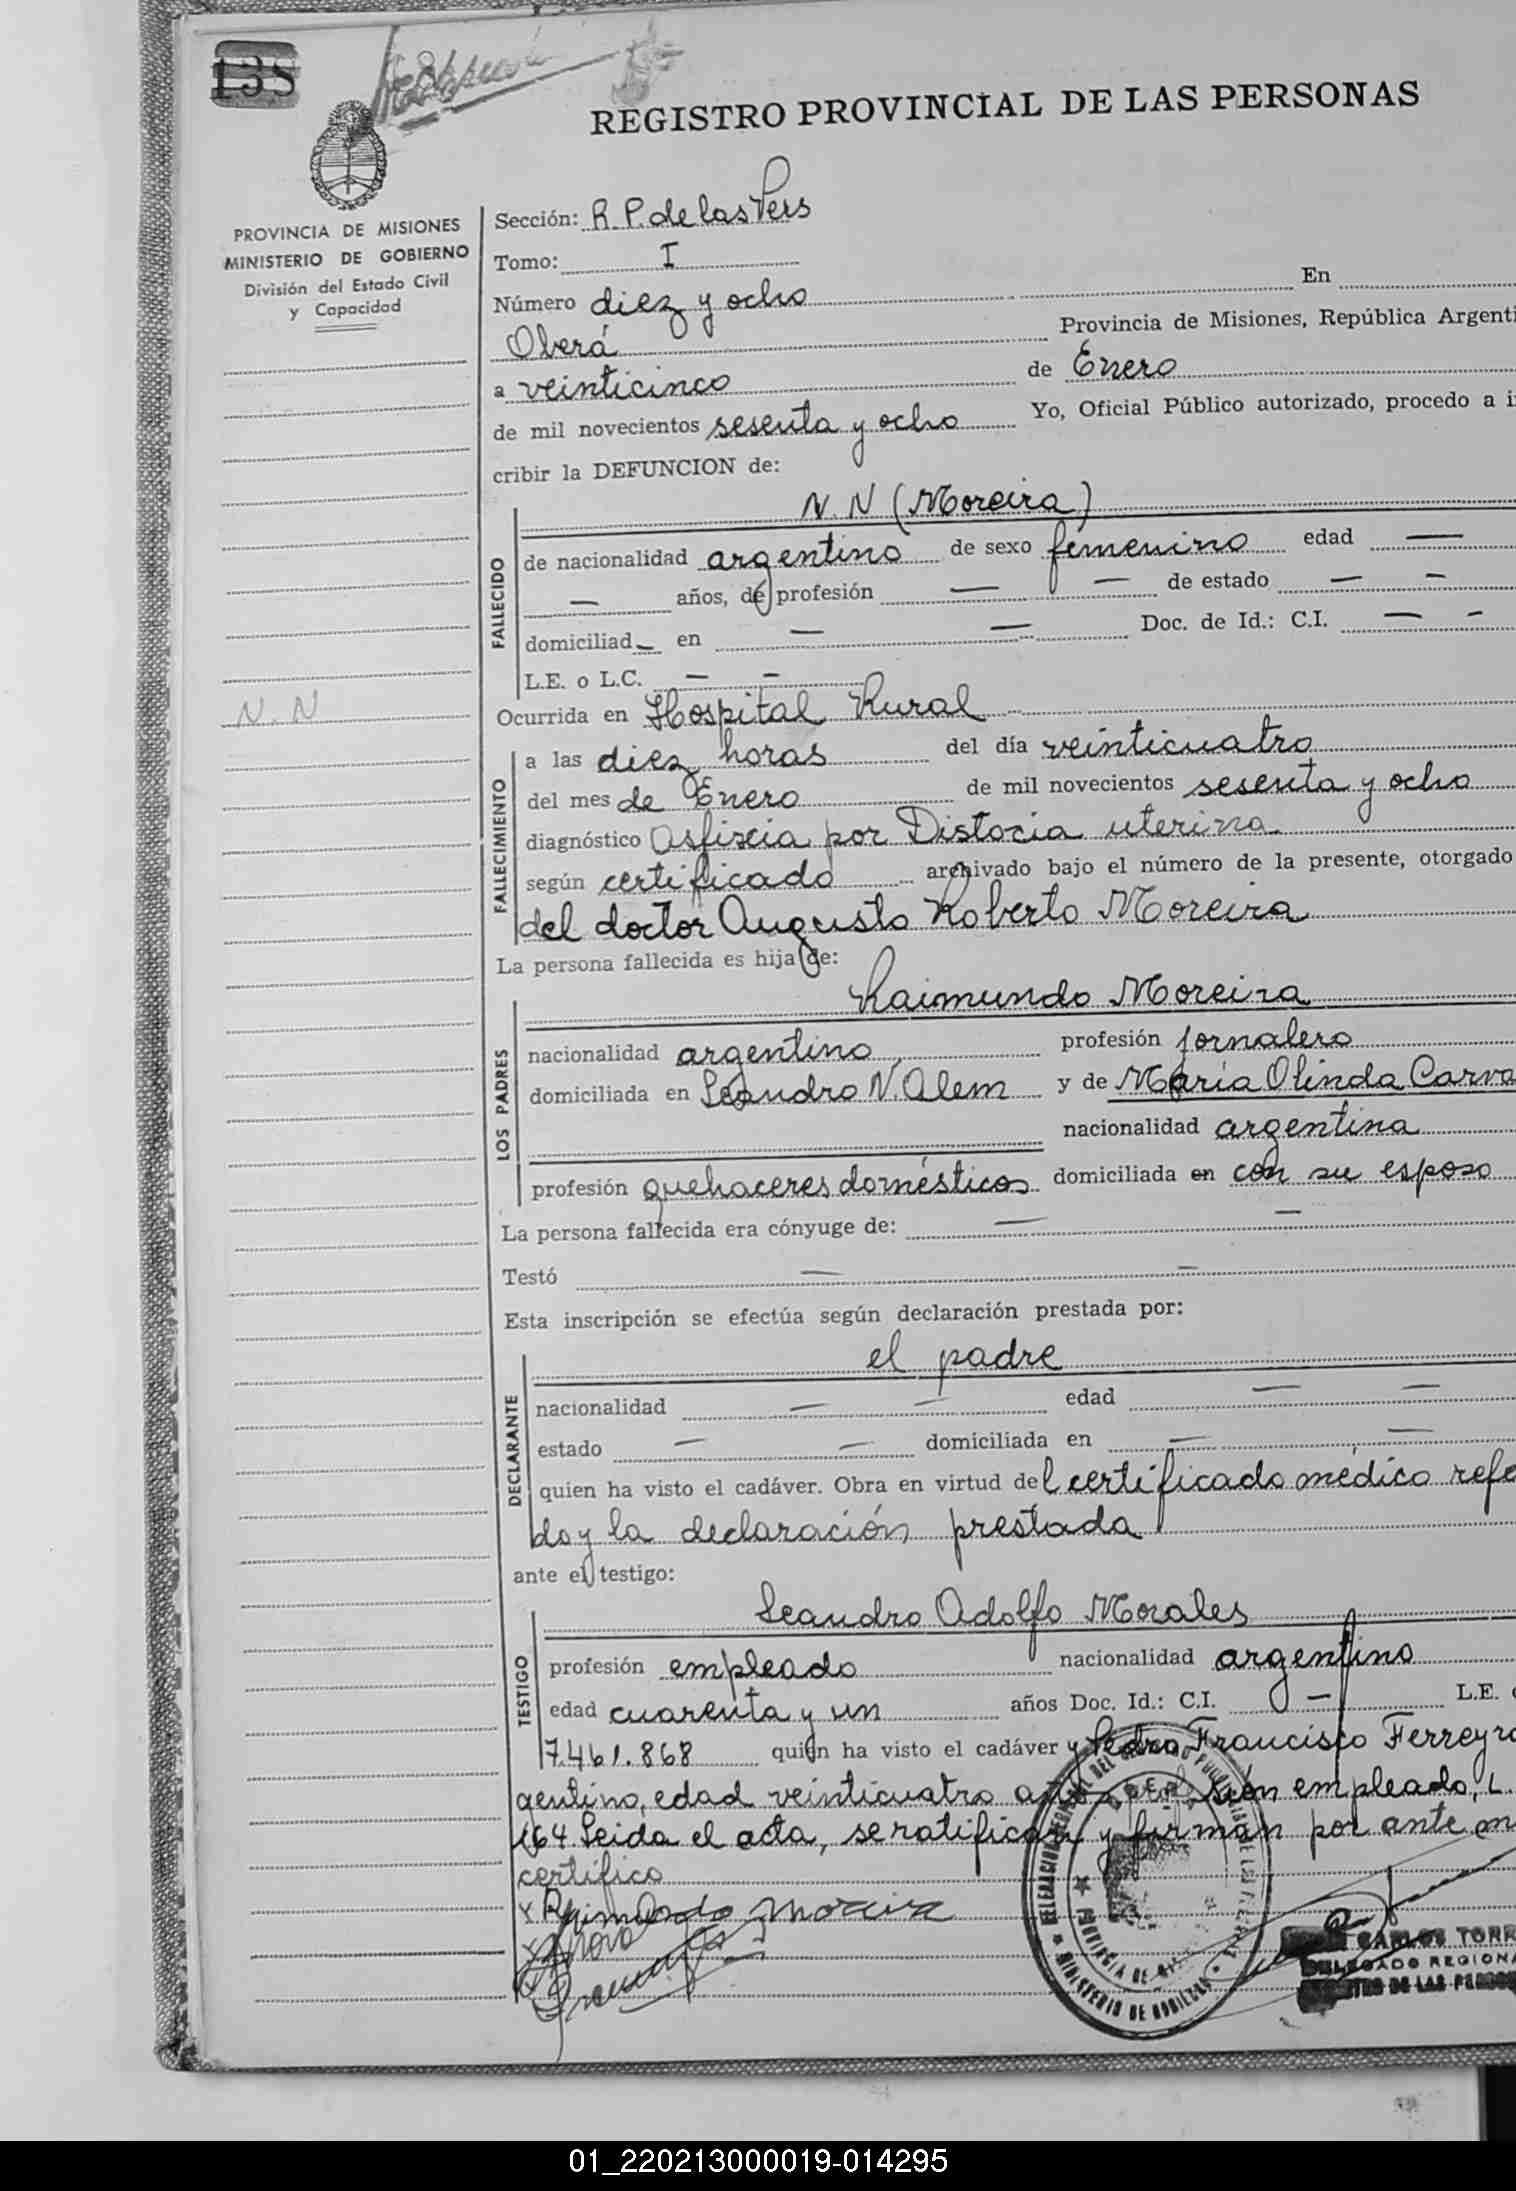 138
REGISTRO PROVINCIAL DE LAS PERSONAS
PROVINCIA DE MISIONES
MINISTERIO DE GOBIERNO
División del Estado Civil
y Capacidad
N. N
Sección: R. P. de las Pers
Tomo: I
Número diez y ocho En
Oberá Provincia de Misiones, República Argenti
a veinticinco de Enero
de mil novecientos sesenta y ocho Yo, Oficial Público autorizado, procedo a i
cribir la DEFUNCION de:
N. N (Moreira)
FALLECIDO
de nacionalidad argentino de sexo femenino edad —
— años, de profesión — — de estado — -
domiciliad_ en — — Doc. de Id.: C.I. — -
L.E. o L.C. — -
Ocurrida en Hospital Rural
FALLECIMIENTO
a las diez horas del día veinticuatro
del mes de Enero de mil novecientos sesenta y ocho
diagnóstico Asfixia por Distocia uterina
según certificado archivado bajo el número de la presente, otorgado
del doctor Augusto Roberto Moreira
La persona fallecida es hija de:
LOS PADRES
Raimundo Moreira
nacionalidad argentino profesión jornalero
domiciliada en Leandro N. Alem y de María Olinda Carva
nacionalidad argentina
profesión quehaceres domésticos domiciliada en con su esposo
La persona fallecida era cónyuge de: — —
Testó — —
Esta inscripción se efectúa según declaración prestada por:
DECLARANTE
el padre
nacionalidad — — edad — —
estado — — domiciliada en — —
quien ha visto el cadáver. Obra en virtud del certificado médico refe
do y la declaración prestada
ante el testigo:
TESTIGO
Leandro Adolfo Morales
profesión empleado nacionalidad argentino
edad cuarenta y un años Doc. Id.: C.I. — L.E.
7.461.868 quien ha visto el cadáver y Pedro Francisco Ferreyra
gentino, edad veinticuatro años empleado, L.
164. Leida el acta, se ratifican y firman por ante m
certifico
x Raimundo Moreira
PROVINCIA DE
MINISTERIO DE GOBIERNO
CARLOS TORR
DELEGADO REGIONA
DE LAS PERSO
01_220213000019-014295